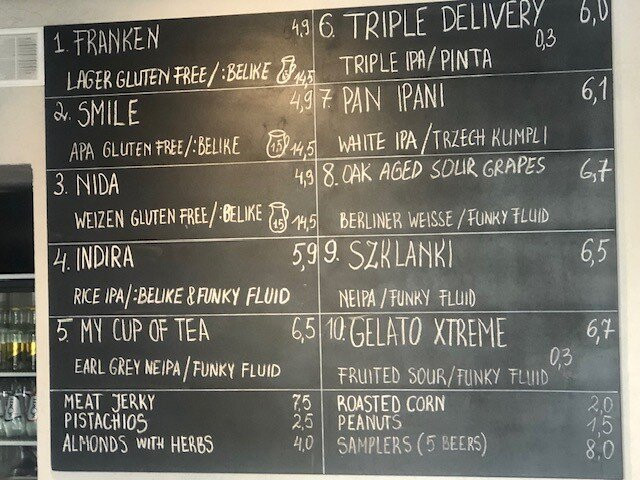 1. FRANKEN 4,9
LAGER GLUTEN FREE/:BELIKE 14,5
2. SMILE 4,9
APA GLUTEN FREE/:BELIKE 1,5 14,5
3. NIDA 4,9
WEIZEN GLUTEN FREE/:BELIKE 1,5 14,5
4. INDIRA 5,9
RICE IPA/:BELIKE & FUNKY FLUID
5. MY CUP OF TEA 6,5
EARL GREY NEIPA/FUNKY FLUID
MEAT JERKY 7,5
PISTACHIOS 2,5
ALMONDS WITH HERBS 4,0
6. TRIPLE DELIVERY 6,0
0,3
TRIPLE IPA/PINTA
7. PAN IPANI 6,1
WHITE IPA/TRZECH KUMPLI
8. OAK AGED SOUR GRAPES 6,7
BERLINER WEISSE/FUNKY FLUID
9. SZKLANKI 6,5
NEIPA/FUNKY FLUID
10. GELATO XTREME 6,7
0,3
FRUITED SOUR/FUNKY FLUID
ROASTED CORN 2,0
PEANUTS 1,5
SAMPLERS (5 BEERS) 8,0